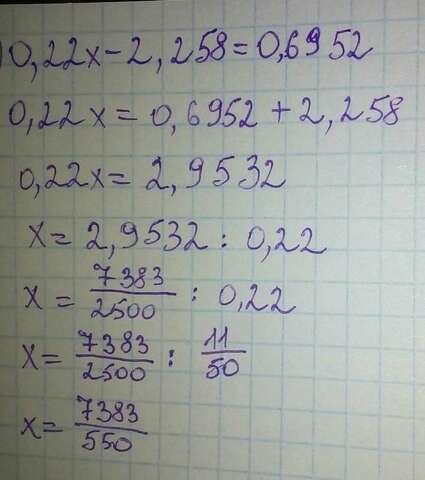 ) 0,22x-2,258=0,6952
0,22x=0,6952+2,258
0,22x=2,9532
x=2,9532:0,22
x=7383/2500:0,22
x=7383/2500:11/50
x=7383/550